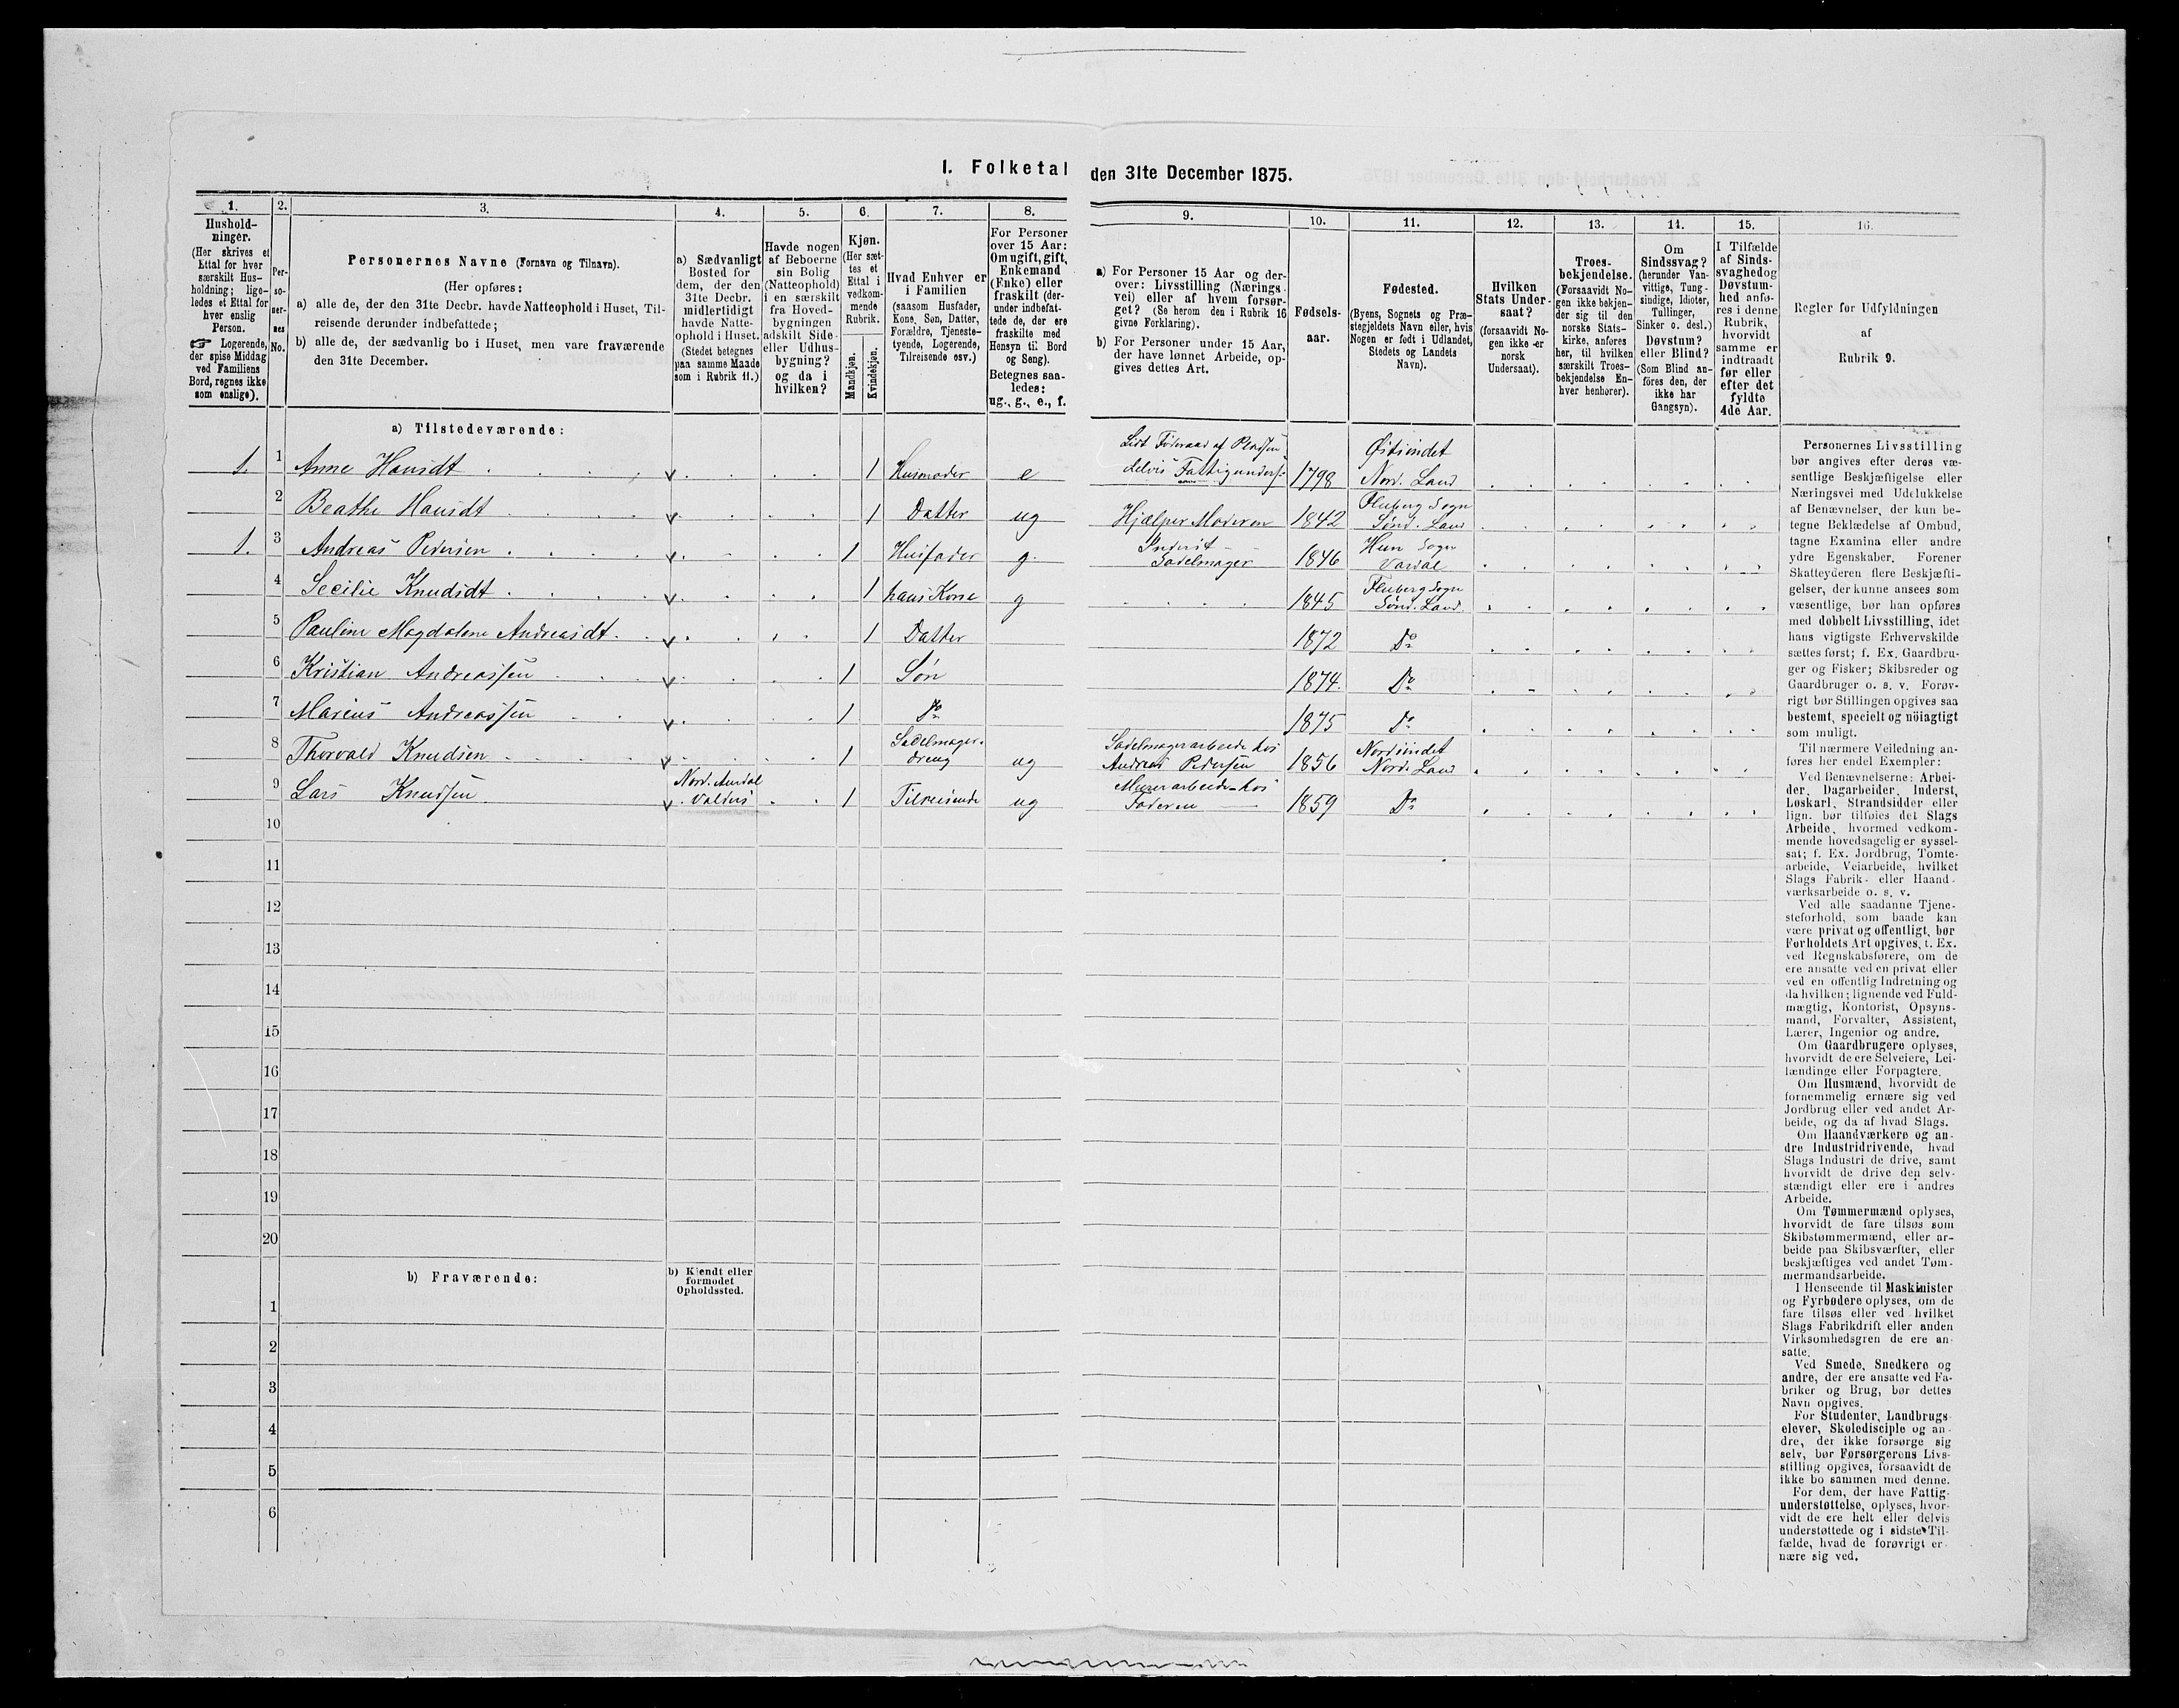 I. Folketal den 31te December 1875.
1. 2. 3. 4. 5. 6. 7. 8. 9. 10. 11. 12. 13. 14. 15. 16.
Hushold-
ninger.
(Her skrives et
Ettal for hver
særskilt Hus-
holdning; lige-
ledes et Ettal for
hver enslig
Person.
☞ Logerende,
der spise Middag
ved Familiens
Bord, regnes ikke
som enslige).
Per-
so-
ner-
nes
No.
Personernes Navne (Fornavn og Tilnavn).
(Her opføres:
a) alle de, der den 31te Decbr. havde Natteophold i Huset, Til-
reisende derunder indbefattede;
b) alle de, der sædvanlig bo i Huset, men vare fraværende
den 31te December.
a) Sædvanligt
Bosted for
dem, der den
31te Decbr.
midlertidigt
havde Natte-
ophold i Huset.
(Stedet betegnes
paa samme Maade
som i Rubrik 11.)
Havde nogen
af Beboerne
sin Bolig
(Natteophold)
i en særskilt
fra Hoved-
bygningen
adskilt Side-
eller Udhus-
bygning?
og da i
hvilken?
Kjøn.
(Her sæt-
tes et
Ettal i
vedkom-
mende
Rubrik.
Mandkjøn.
Kvindekjøn.
Hvad Enhver er
i Familien
(saasom Husfader,
Kone, Søn, Datter,
Forældre, Tjeneste-
tyende, Logerende,
Tilreisende osv.)
For Personer
over 15 Aar:
Om ugift, gift,
Enkemand
(Enke) eller
fraskilt (der-
under indbefat-
tede de, der ere
fraskilte med
Hensyn til Bord
og Seng).
Betegnes saa-
ledes:
ug., g., e., f.
a) For Personer 15 Aar og der-
over: Livsstilling (Nærings-
vei) eller af hvem forsør-
get? (Se herom den i Rubrik 16
givne Forklaring).
b) For Personer under 15 Aar,
der have lønnet Arbeide, op-
gives dettes Art.
Fødsels-
aar.
Fødested.
(Byens, Sognets og Præ-
stegjeldets Navn eller, hvis
Nogen er født i Udlandet,
Stedets og Landets
Navn).
Hvilken
Stats Under-
saat?
(forsaavidt No-
gen ikke er
norsk
Undersaat).
Troes-
bekjendelse.
(Forsaavidt No-
gen ikke bekjen-
der sig til den
norske Stats-
kirke, anføres
her, til hvilken
særskilt Troes-
bekjendelse En-
hver henhører).
Om
Sindssvag?
(herunder Van-
vittige, Tung-
sindige, Idioter,
Tullinger,
Sinker o. desl.)
Døvstum?
eller Blind?
(Som Blind an-
föres den, der
ikke har
Gangsyn).
I Tilfælde
af Sinds-
svaghed og
Døvstum-
hed anfø-
res i denne
Rubrik,
hvorvidt
samme er
indtraadt
før eller
efter det
fyldte
4de Aar.
Regler for Udfyldningen
af
Rubrik 9.
a) Tilstedeværende:
1. 1 Anne Hansdt v 1 Husmoder e Lidt Föderaad af Pladsen delvis Fattigunderst 1798 Østsindet Nord. Land
2 Beathe Hansdt v 1 Datter ug Hjælper Moderen 1842 Fluberg Sogn Sönd. Land
1. 3 Andreas Pedersen v 1 Husfader g. Inderst Sadelmager 1846 Hun Sogn Vardal
4 Secilie Knudsdt v 1 hans Kone g 1845 Fluberg Sogn Sönd. Land
5 Pauline Magdalene Andreasdt. v 1 Datter 1872 Do
6 Kristian Andreassen v 1 Søn 1874. Do
7 Marius Andreassen v 1 Do 1875 Do
8 Thorvald Knudsen v 1 Sadelmager-dreng ug Sadelmagerarbeide hos Andreas Pedersen 1856 Nordsindet Nord. Land
9 Lars Knudsen v Nord. Aurdal Valders 1 Tilreisende ug Murerarbeide hos Faderen 1859 Do
10
11
12
13
14
15
16
17
18
19
20
b) Fraværende:
b) Kjendt eller
formodet
Opholdssted.
1
2
3
4
5
6
Personernes Livsstilling
bør angives efter deres væ-
sentlige Beskjæftigelse eller
Næringsvei med Udelukkelse
af Benævnelser, der kun be-
tegne Beklædelse af Ombud,
tagne Examina eller andre
ydre Egenskaber. Forener
Skatteyderen flere Beskjæfti-
gelser, der kunne ansees som
væsentlige, bør han opføres
med dobbelt Livsstilling, idet
hans vigtigste Erhvervskilde
sættes først; f. Ex. Gaardbru-
ger og Fisker; Skibsreder og
Gaardbruger o. s. v. Forøv-
rigt bør Stillingen opgives saa
bestemt, specielt og nöiagtigt
som muligt.
Til nærmere Veiledning an-
føres her endel Exempler:
Ved Benævnelserne: Arbei-
der, Dagarbeider, Inderst,
Løskarl, Strandsidder eller
lign. bør tilføies det Slags
Arbeide, hvormed vedkom-
mende hovedsagelig er syssel-
sat; f. Ex. Jordbrug, Tomte-
arbeide, Veiarbeide, hvilket
Slags Fabrik- eller Haand-
værksarbeide o. s. v.
Ved alle saadanne Tjene-
steforhold, som baade kan
være privat og offentligt, bør
Forholdets Art opgives, t. Ex.
ved Regnskabsførere, om de
ere ansatte ved en privat eller
ved en offentlig Indretning og
da hvilken; lignende ved Fuld-
mægtig, Kontorist, Opsyns-
mand, Forvalter, Assistent,
Lærer, Ingeniør og andre.
Om Gaardbrugere oplyses,
hvorvidt de ere Selveiere, Lei-
lændinge eller Forpagtere.
Om Husmænd, hvorvidt de
fornemmelig ernære sig ved
Jordbrug eller ved andet Ar-
beide, og da af hvad Slags.
Om Haandværkere og an-
dre Industridrivende, hvad
Slags Industri de drive, samt
hvorvidt de drive den selv-
stændigt eller ere i andres
Arbeide.
Om Tømmermænd oplyses,
hvorvidt de fare tilsøs som
Skibstømmermænd, eller ar-
beide paa Skibsværfter, eller
beskjæftiges ved andet Tøm-
mermandsarbeide.
I Henseende til Maskinister
og Fyrbødere oplyses, om de
fare tilsøs eller ved hvilket
Slags Fabrikdrift eller anden
Virksomhedsgren de ere an-
satte.
Ved Smede, Snedkere og
andre, der ere ansatte ved Fa-
briker og Brug, bør dettes
Navn opgives.
For Studenter, Landbrugs-
elever, Skoledisciple og an-
dre, der ikke forsørge sig
selv, bør Forsørgerens Livs-
stilling opgives, forsaavidt de
ikke bo sammen med denne.
For dem, der have Fattig-
understøttelse, oplyses, hvor-
vidt de ere helt eller delvis
understøttede og i sidste Til-
fælde, hvad de forøvrigt er-
nære sig ved.